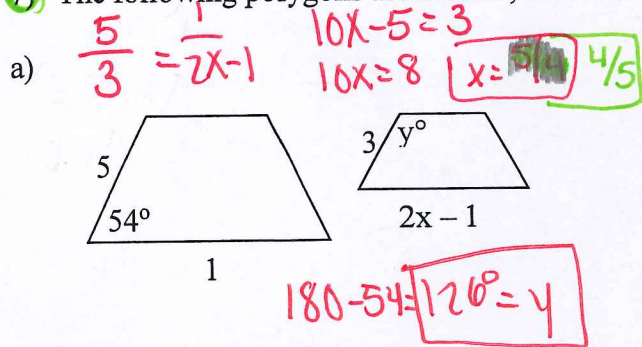 5/3 = 1/2x-1
10x-5=3
a)
10x=8
x= 4/5
5
54°
1
3
y°
2x – 1
180-54=126°=y